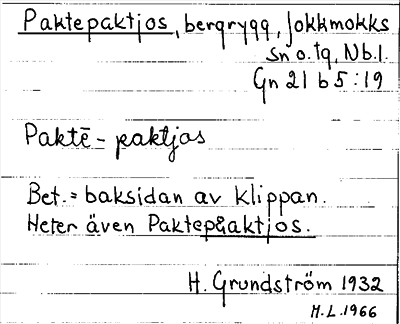 Paktepaktjos, bergrygg, Jokkmokks
sn o. tg, Nb.l.
Gn 21 b 5:19
Paktē - paktjos
Bet. = baksidan av klippan.
Heter även Paktepåaktjos.
H. Grundström 1932
H.L. 1966